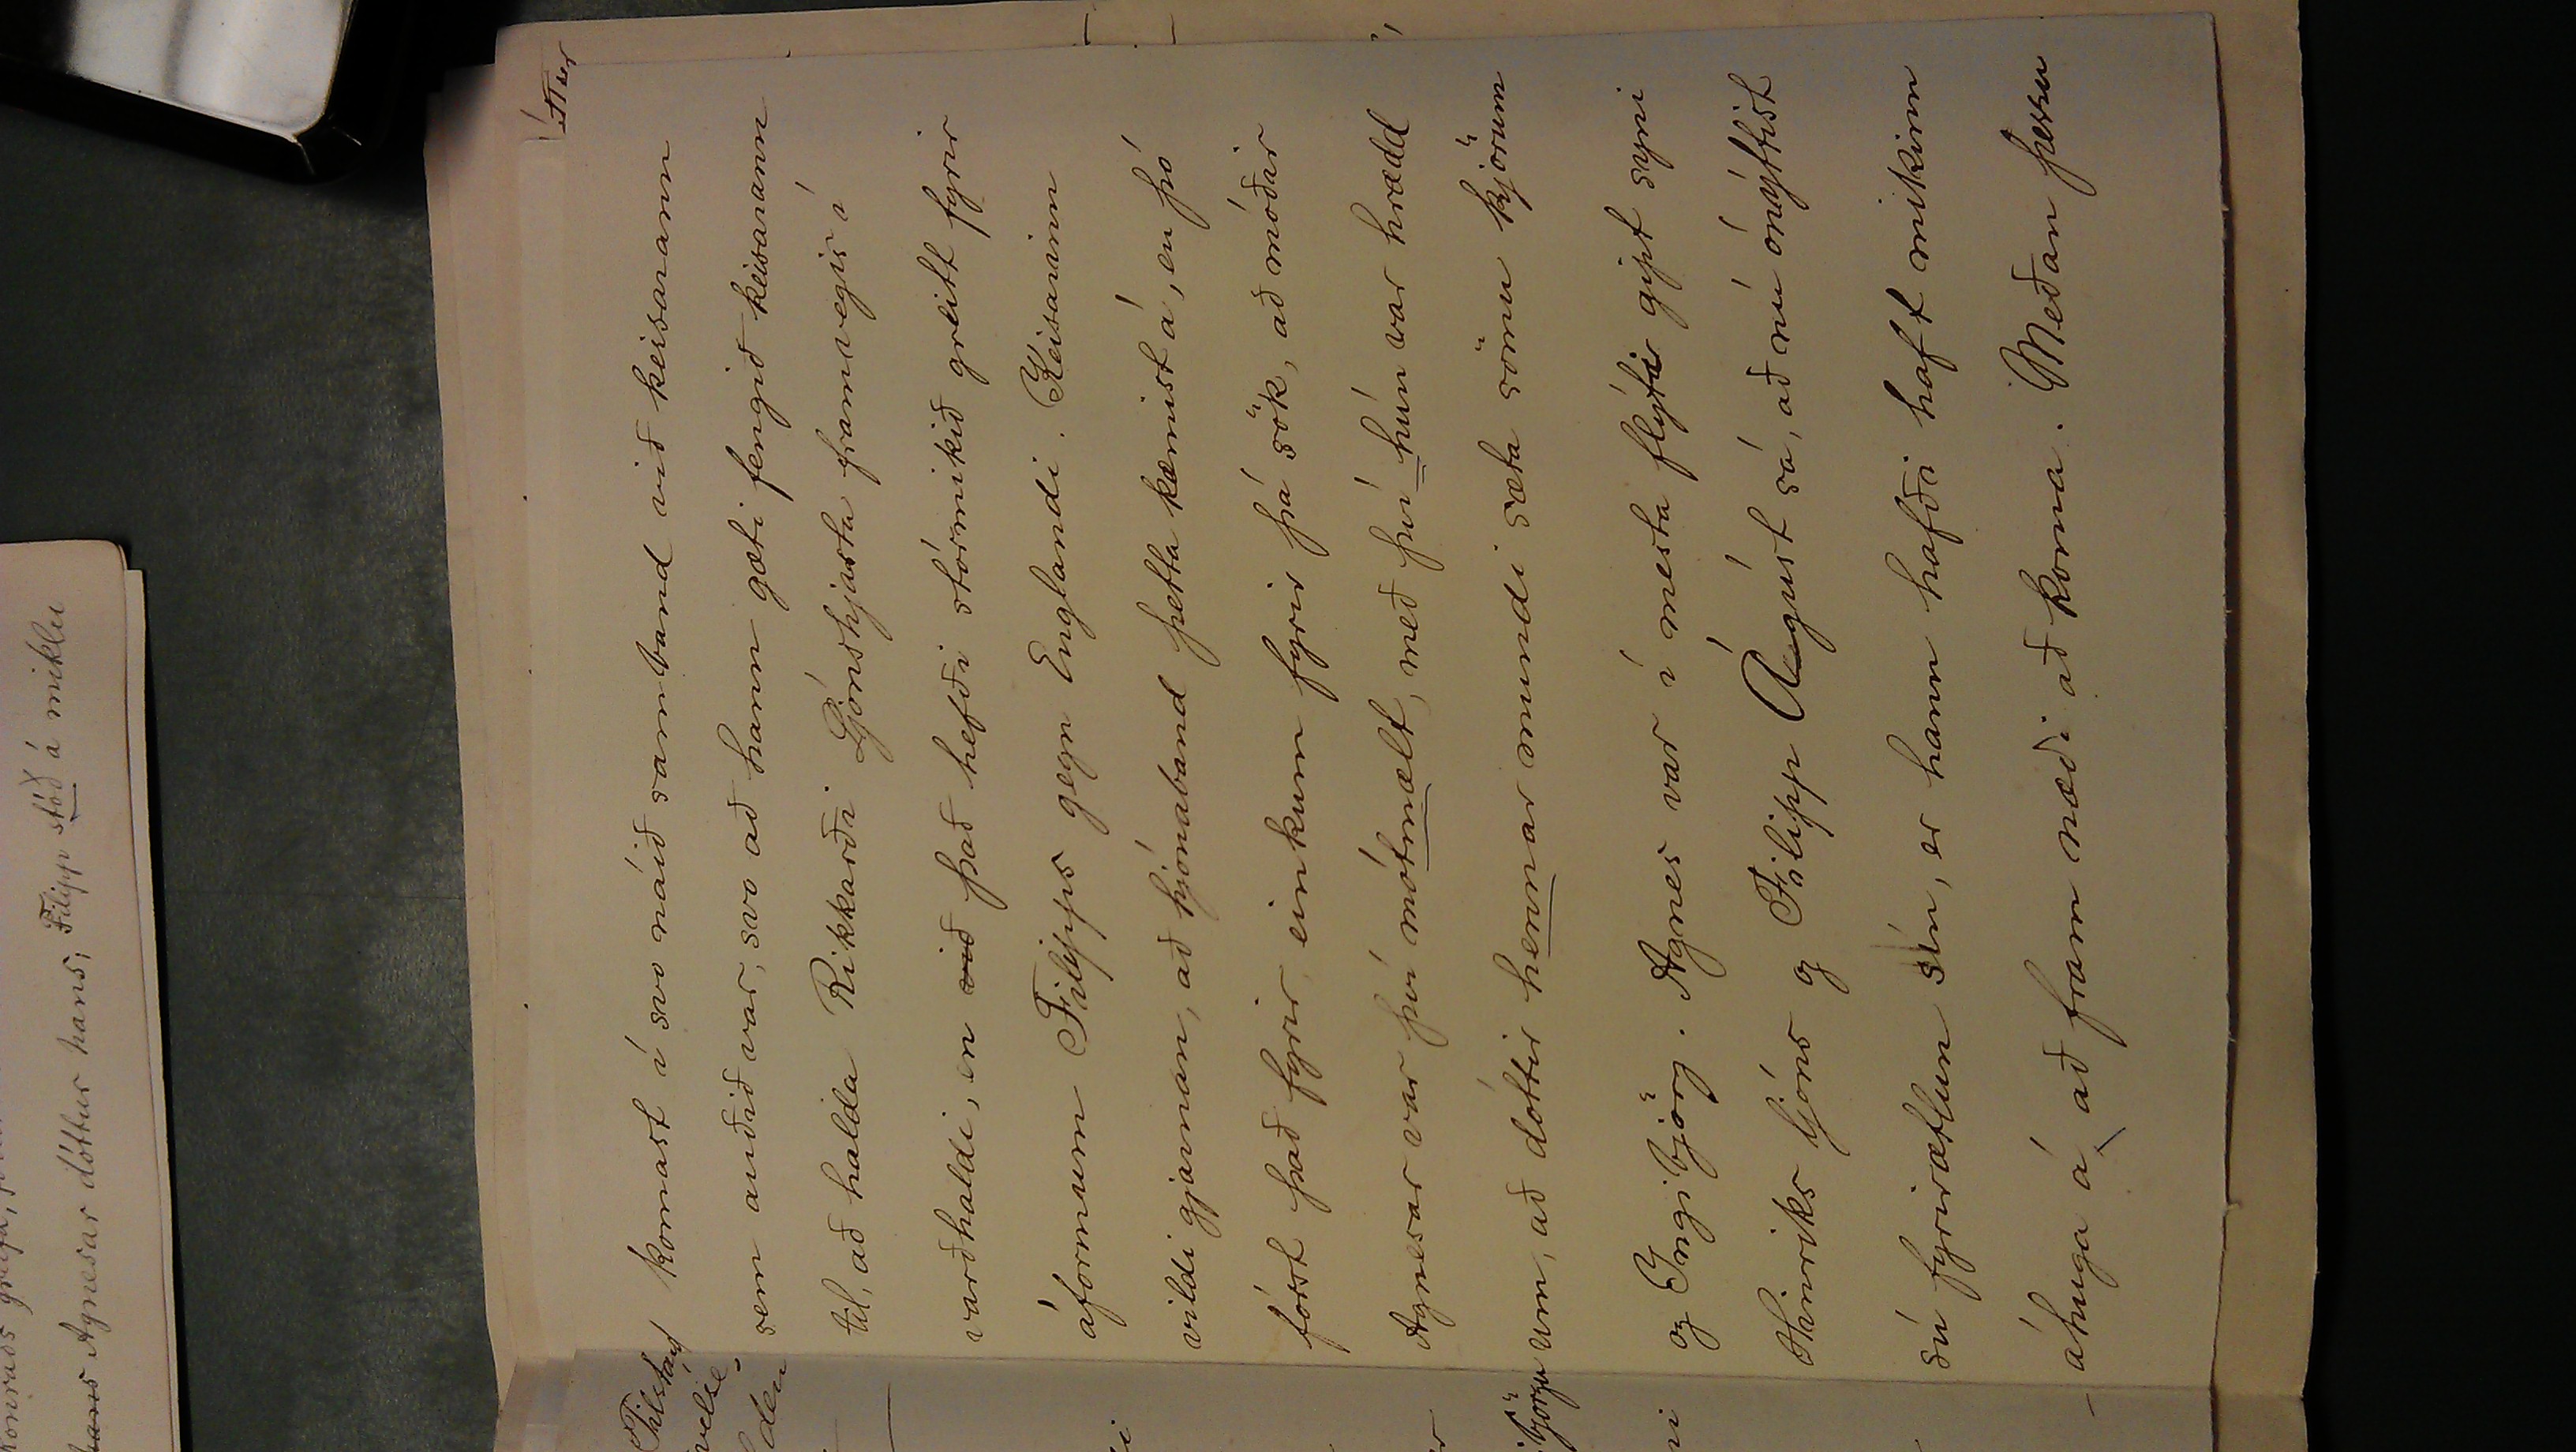 komast í svo náið samband við keisarann
sem auðið var, svo að hann gæti fengið keisarann
til, að halda Rikkarði Ljónshjarta framvegis í
varðhaldi, en við það hefði stórmikið greitt fyrir
áformum Filipps gegn Englandi. Keisarinn
vildi gjarnan, að hjónaband þetta kæmist á, en þó
fórst það fyrir, einkum fyrir þá sök, að móðir
Agnesar var því mótmælt, með því hún var hrædd
um, að dóttir hennar mundi sæta sömu kjörum
og Ingibjörg. Agnes var í mesta flýti gipt syni
Hinriks ljóns og Filipp Ágúst sá, að nú ónýttist
sú fyrirætlun sín, er hann hafði haft mikinn
áhuga á að fram næði að koma. Meðan þessu
Filipp stóð á miklu
hans Agnesar dóttur hans,
Konráðs greifa,